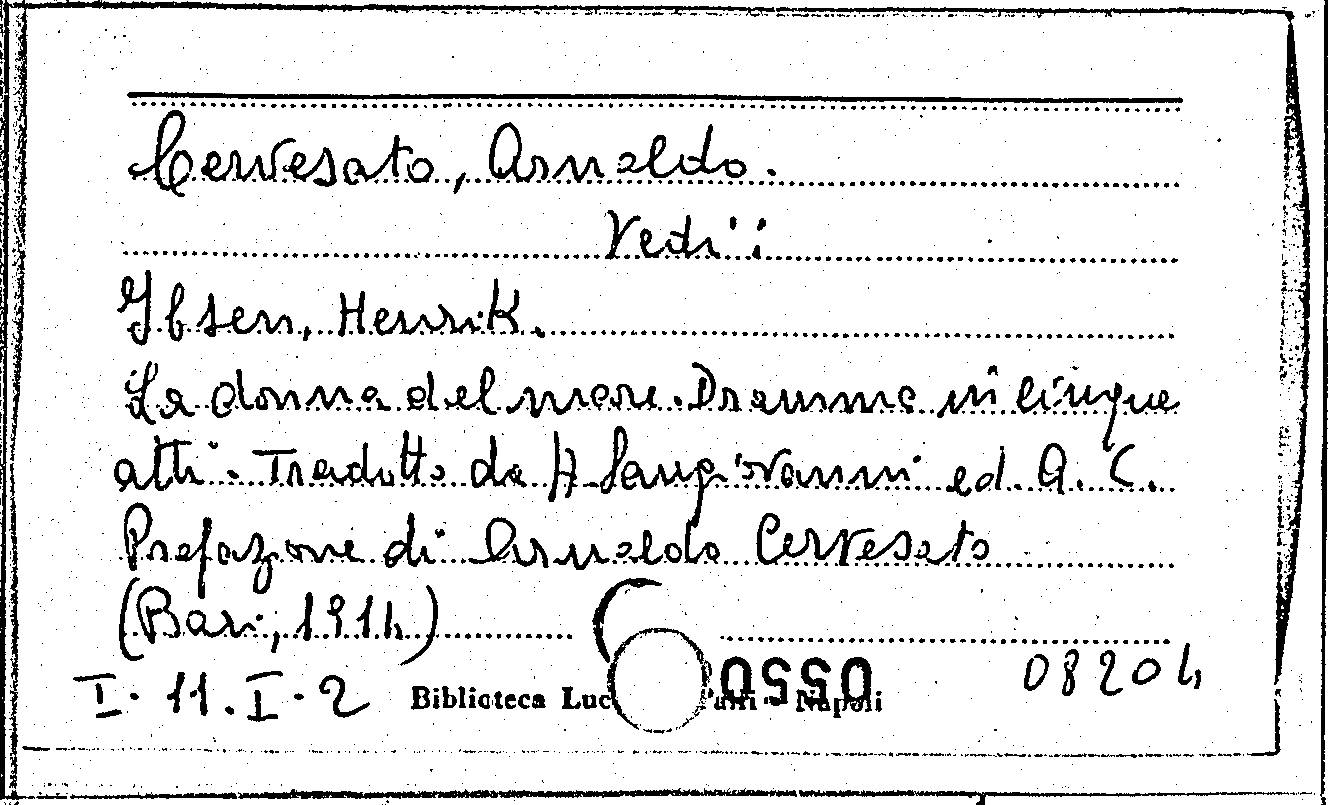 Cervesato, Arnaldo.
Vedi:
Ibsen, Henrik.
La donna del mare. Dramma in cinque
atti. Tradotto da H. Sangiovanni ed. A. C.
Prefazione di Arnaldo Cervesato
(Bari, 1914)
08204
I. 11. I. 2 Biblioteca Napoli